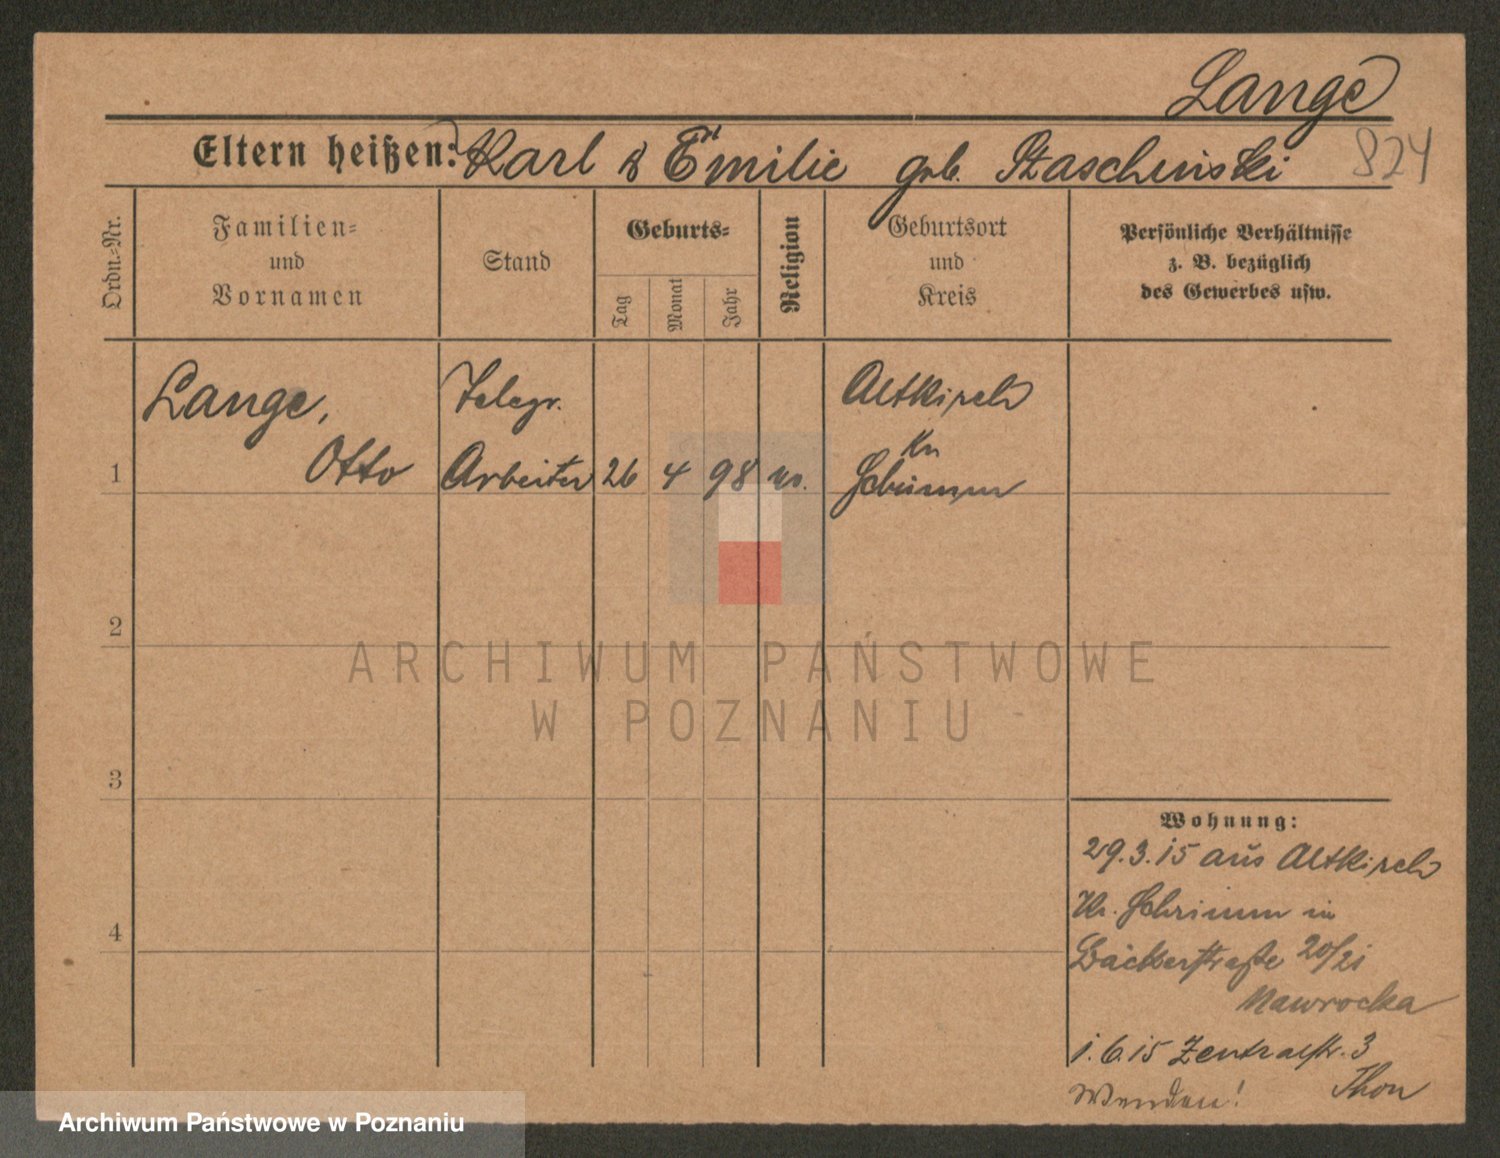 Lange
Eltern heißen: Karl & Emilie geb. Staschinski 824
Ordn.=Nr.
Familien=
und
Vornamen
Stand
Geburts=
Tag
Monat
Jahr
Religion
Geburtsort
und
Kreis
Persönliche Verhältnisse
z. B. bezüglich
des Gewerbes usw.
Lange, Telegr. Altkirch
1 Otto Arbeiter 26 4 98 Kr.
Schrimm
2
ARCHIWUM PAŃSTWOWE
W POZNANIU
3
4
Wohnung:
29.3.15 aus Altkirch
Kr. Schrimm in
Bäckerstraße 20/21
Nawrocka
1.6.15 Zentralstr. 3
Thon
Wenden!
Archiwum Państwowe w Poznaniu